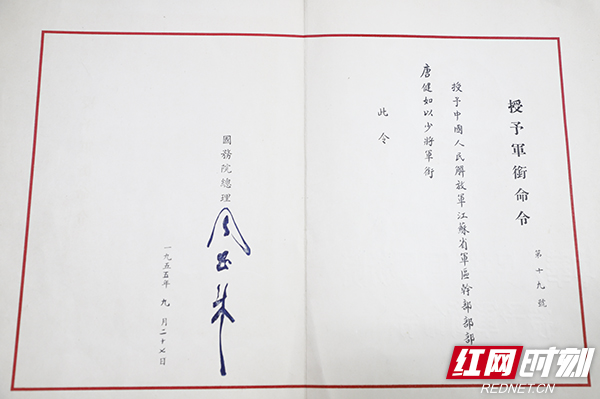 授予軍銜命令
第十九號
授予中國人民解放軍江蘇省軍區幹部部部
唐健如以少將軍銜
此令
國務院總理
周恩来
一九五五年九月二十七日
红网时刻
REDNET.CN